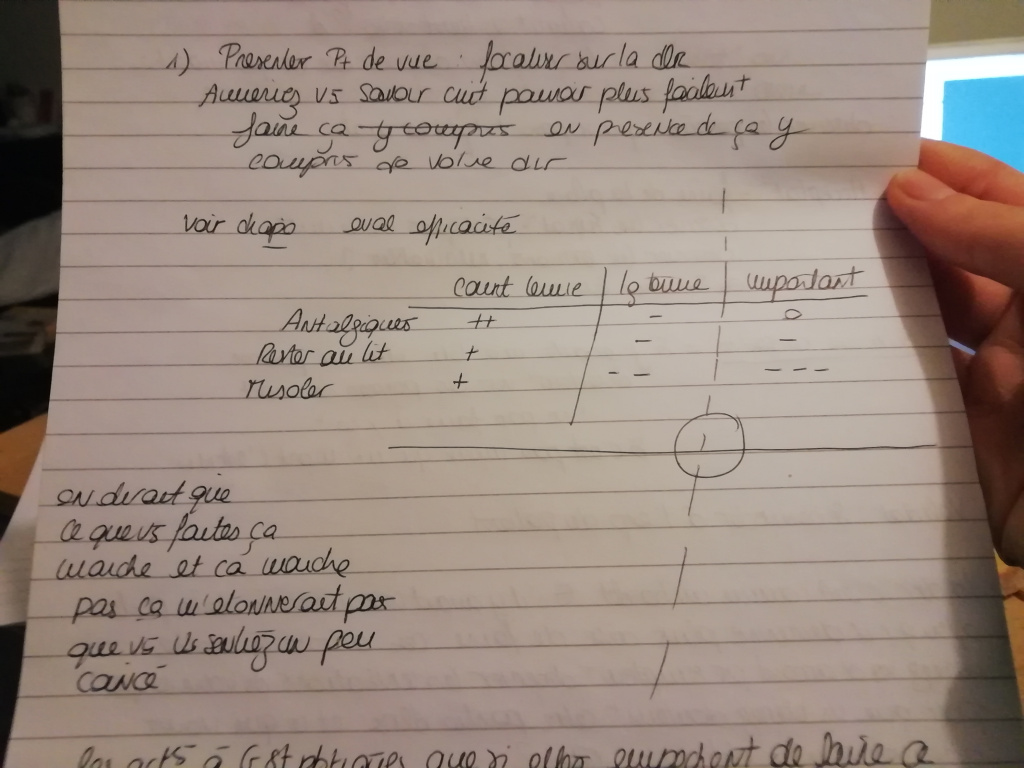 1) Presenter Pt de vue : focaliser sur la dlr
Aimeriez vs savoir cmt pouvoir plus facilemt
faire ça y compris en presence de ça y
compris de votre dlr
voir chapo eval efficacité
court terme lg terme important
Antalgiques ++ - 0
Rester au lit + - -
M'isoler + -- ---
on dirait que
ce que vs faites ça
marche et ca marche
pas ça m'etonnerait pas
que vs vs sentiez un peu
coincé
les à que si elles empechent de faire ce